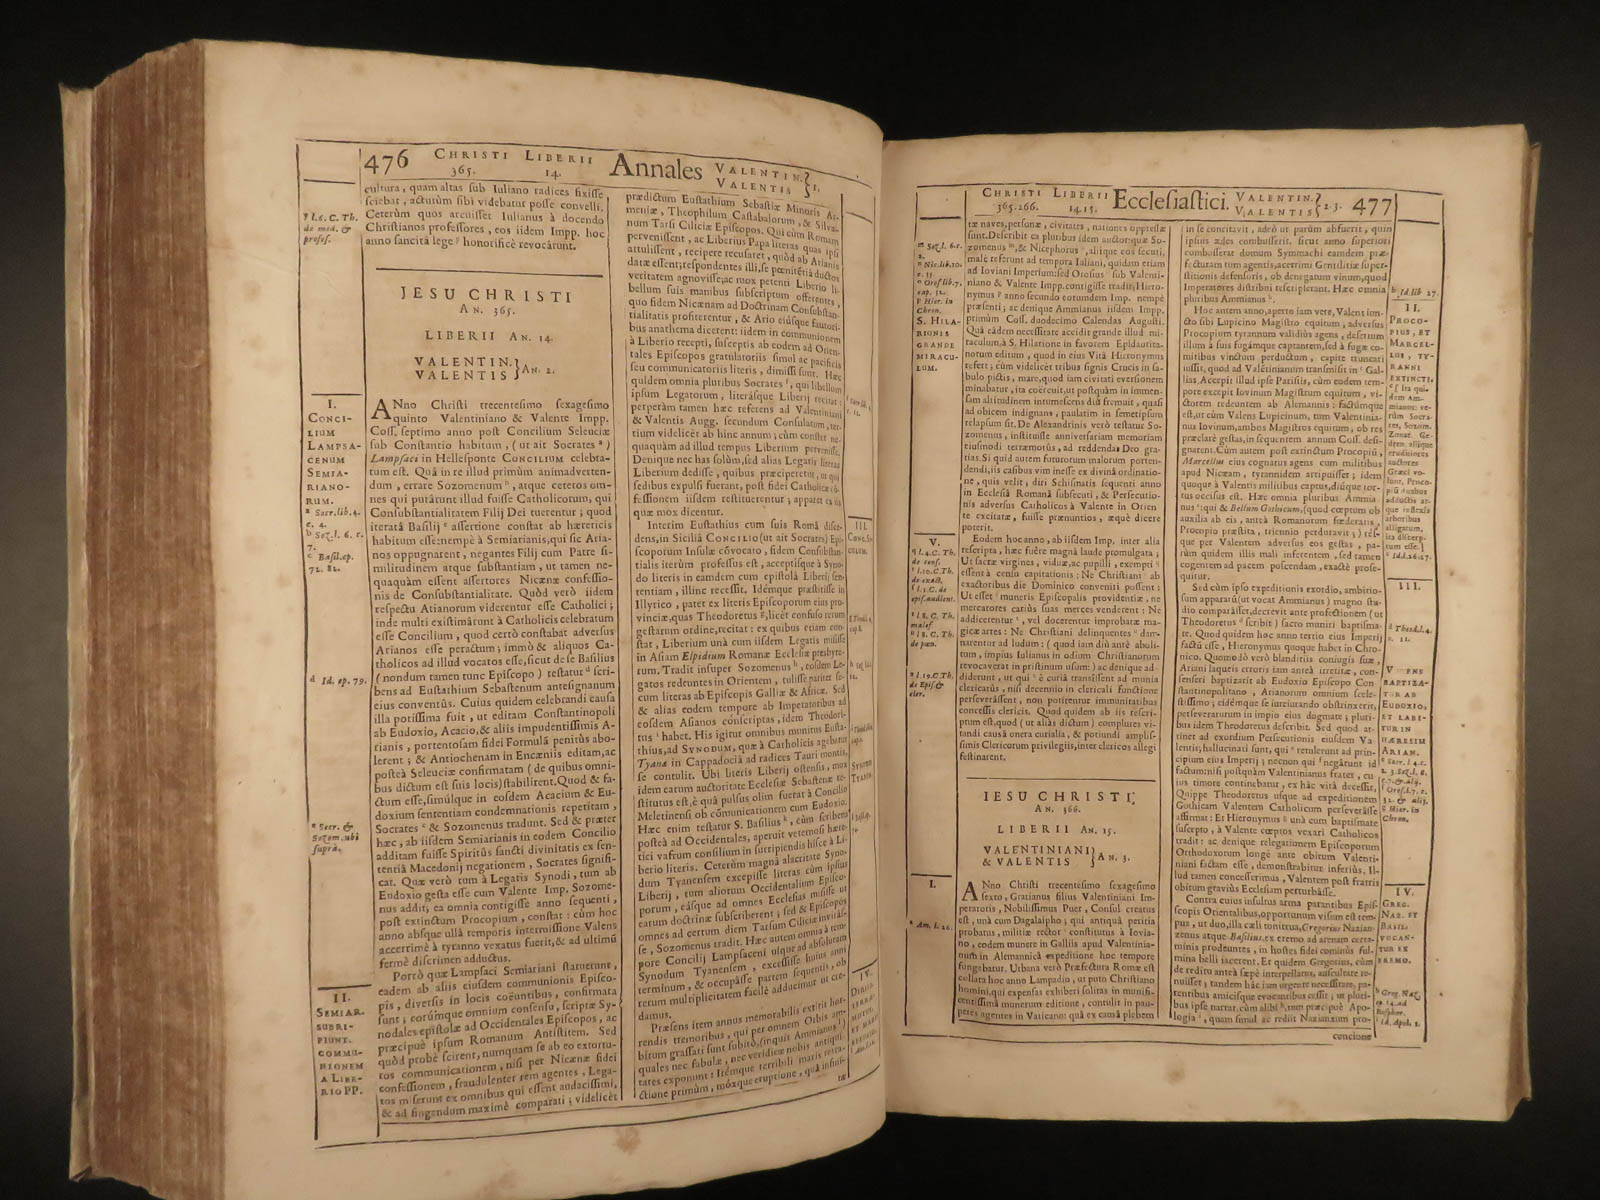 476 CHRISTI LIBERII Annales VALENTIN. VALENTIS } 1.
365. 14.
cultura, quam altas sub Iuliano radices fixisse
sciebat, acturum sibi videbatur posse convelli.
Ceterùm quos arcuisset Iulianus à docendo
Christianos professores, eos iidem Impp. hoc
anno sancita lege honorificè revocârunt.
l. 6. C. Th.
de med. &
profes.
JESU CHRISTI
AN. 365.
LIBERII AN. 14.
VALENTIN.
VALENTIS } AN. 2.
I.
CONCI-
LIUM
LAMPSA-
CENUM
SEMIA-
RIANO-
RUM.
a Socr. lib. 4.
c. 4.
b Soz. l. 6. c.
7.
c Basil. ep.
72. 82.
d Id. ep. 79.
e Socr. &
Sozom. ubi
suprà.
II.
SEMIAR.
SUBRI-
PIUNT
COMMU-
NIONEM
A LIBE-
RIO PP.
ANno Christi trecentesimo sexagesimo
quinto Valentiniano & Valente Impp.
Coss. septimo anno post Concilium Seleuciæ
sub Constantio habitum, (ut ait Socrates a)
Lampsaci in Hellesponte CONCILIUM celebra-
tum est. Quâ in re illud primùm animadverten-
dum, errare Sozomenum b, atque ceteros om-
nes qui putârunt illud fuisse Catholicorum, qui
Consubstantialitatem Filij Dei tuerentur; quod
iteratâ Basilij c assertione constat ab hæreticis
habitum esse: nempè à Semiarianis, qui sic Aria-
nos oppugnarent, negantes Filij cum Patre si-
militudinem atque substantiam, ut tamen ne-
quaquàm essent assertores Nicænæ confessio-
nis de Consubstantialitate. Quòd verò iidem
respectu Arianorum viderentur esse Catholici;
inde multi existimârunt à Catholicis celebratum
esse Concilium, quod certò constabat adversus
Arianos esse peractum; immò & aliquos Ca-
tholicos ad illud vocatos esse, sicut de se Basilius
( nondum tamen tunc Episcopo ) testatur d scri-
bens ad Eustathium Sebastenum antesignanum
eius conventûs. Cuius quidem celebrandi causa
illa potissima fuit, ut editam Constantinopoli
ab Eudoxio, Acacio, & aliis impudentissimis A-
rianis, portentosam fidei Formulam penitùs abo-
lerent; & Antiochenam in Encæniis editam, ac
posteà Seleuciæ confirmatam ( de quibus omni-
bus dictum est suis locis) stabilirent. Quod & fa-
ctum esse, simúlque in eosdem Acacium & Eu-
doxium sententiam condemnationis repetitam,
Socrates e & Sozomenus tradunt. Sed & præter
hæc, ab iisdem Semiarianis in eodem Concilio
additam fuisse Spiritûs sancti divinitatis ex sen-
tentiâ Macedonij negationem, Socrates signifi-
cat. Quæ verò tum à Legatis Synodi, tum ab
Eudoxio gesta esse cum Valente Imp. Sozome-
nus addit; ea omnia contigisse anno sequenti,
post extinctum Procopium, constat: cùm hoc
anno absque ullâ temporis intermissione Valens
acerrimè à tyranno vexatus fuerit, & ad ultimũ
fermè discrimen adductus.
Porrò quæ Lampsaci Semiariani statuerunt,
eadem ab aliis eiusdem communionis Episco-
pis, diversis in locis coëuntibus, confirmata
sunt; eorúmque omnium consensu, scriptæ Sy-
nodales epistolæ ad Occidentales Episcopos, ac
præcipuè ipsum Romanum Antistitem. Sed
quòd probè scirent, numquam se ab eo extortu-
ros communicationem, nisi per Nicænæ fidei
confessionem, fraudulenter rem agentes, Lega-
tos miserunt ex omnibus qui essent audacissimi,
& ad fingendum maximè comparati; videlicèt
prædictum Eustathium Sebastiæ Minoris Ar-
meniæ, Theophilum Castabalorum, & Silva-
num Tarsi Ciliciæ Episcopos. Qui cùm Romam
pervenissent, ac Liberius Papa literas quas ipsi
attulissent, recipere recusaret, quòd ab Arianis
datæ essent; respondentes illi, se pœnitẽtiâ ductos
veritatem agnovisse; ac mox petenti Liberio li-
bellum suis manibus subscriptum offerentes,
quo fidem Nicænam ad Doctrinam Consubstan-
tialitatis profiterentur, & Ario eiúsque fautori-
bus anathema dicerent: iidem in communionem
à Liberio recepti, susceptis ab eodem ad Orien-
tales Episcopos gratulatoriis simul ac pacificis
seu communicatoriis literis, dimissi sunt. Hæc
quidem omnia pluribus Socrates, qui libellum
ipsum Legatorum, literásque Liberij recitat:
perperàm tamen hæc referens ad Valentiniani
& Valentis Augg. secundum Consulatum, ter-
tium videlicèt ab hinc annum; cùm constet ne-
quaquàm ad illud tempus Liberium pervenisse.
Denique nec has solùm, sed alias Legatis literas
Liberium dedisse, quibus præciperetur, ut qui
sedibus expulsi fuerant, post fidei Catholicæ cõ-
fessionem iisdem restituerentur; apparet ex iis
quæ mox dicentur.
Interim Eustathius cum suis Româ disce-
dens, in Siciliâ CONCILIO (ut ait Socrates) Epi-
scoporum Insulæ cõvocato, fidem Consubstan-
tialis iterùm professus est, acceptísque à Syno-
do literis in eamdem cum epistolâ Liberij sen-
tentiam, illinc recessit. Idémque præstitisse in
Illyrico, patet ex literis Episcoporum eius pro-
vinciæ, quas Theodoretus g, licèt confuso rerum
gestarum ordine, recitat: ex quibus etiam con-
stat, Liberium unà cum iisdem Legatis misisse
in Asiam Elpidium Romanæ Ecclesiæ presbyte-
rum. Tradit insuper Sozomenus h, eosdem Le-
gatos redeuntes in Orientem, tulisse pariter se-
cum literas ab Episcopis Galliæ & Africæ. Sed
& alias eodem tempore ab Imperatoribus ad
eosdem Asianos conscriptas, idem Theodori-
tus i habet. His igitur omnibus munitus Eusta-
thius, ad SYNODUM, quæ à Catholicis agebatur
Tyanæ in Cappadociâ ad radices Tauri montis,
se contulit. Ubi literis Liberij ostensis, mox
idem earum auctoritate Ecclesiæ Sebastenæ re-
stitutus est, è quâ pulsus olim fuerat à Concilio
Meletinensi ob communicationem cum Eudoxio.
Hæc enim testatur S. Basilius k, cùm scribens
posteà ad Occidentales, aperuit veternosi hære-
tici vafrum consilium in surripiendis hisce à Li-
berio literis. Ceterùm magnâ alacritate Syno-
dum Tyanensem excepisse literas cùm ipsius
Liberij, tum aliorum Occidentalium Episco-
porum, eásque ad omnes Ecclesias misisse ut
earum doctrinæ subscriberent; sed & Episcopos
omnes ad certum diem Tarsum Ciliciæ invitâs-
se, Sozomenus tradit. Hæc autem omnia à tem-
pore Concilij Lampsaceni usque ad absolutam
Synodum Tyanensem, excessisse huius anni
terminum, & occupâsse partem sequentis, ob
rerum multiplicitatem facilè adducimur ut cre-
damus.
Præsens item annus memorabilis extitit hor-
rendis tremoribus, qui per omnem Orbis am-
bitum grassati sunt subitò, (inquit Ammianus l)
quales nec fabulæ, nec veridicæ nobis antiqui-
tates exponunt: Itémque terribili maris retra-
ctione primùm, móxque eruptione, quâ infini-
tæ
III.
CONC. SI-
CULUM.
SYNODUS
TYAN.
IV.
CHRISTI LIBERII Ecclesiastici. VALENTIN. VALENTIS } 2. 3. 477
365. 366. 14. 15.
m Soz. l. 6. c.
2.
n Nic. lib. 10.
c. 35.
o Oros. lib. 7.
cap. 32.
p Hier. in
Chron.
S. HILA-
RIONIS
GRANDE
MIRACU-
LUM.
V.
q l. 4. C. Th.
de cens.
r l. 10. C. Th.
de exact.
s l. 1. C. de
epis. audient.
t l. 8. C. Th.
malef.
u l. 8. C. Th.
de pœn.
x l. 19. C. Th.
de Epis. &
cler.
I.
a Am. l. 26.
tæ naves, personæ, civitates, nationes oppressæ
sunt. Describit ea pluribus idem auctor: quæ So-
zomenus m, & Nicephorus n, aliique eos secuti,
malè referunt ad tempora Iuliani, quidam etiam
ad Ioviani Imperium: sed Orosius sub Valenti-
niano & Valente Impp. contigisse tradit; Hiero-
nymus p anno secundo eorumdem Imp. nempè
præsenti; ac denique Ammianus iisdem Impp.
primùm Coss. duodecimo Calendas Augusti.
Quâ eâdem necessitate accidit grande illud mi-
raculum, à S. Hilarione in favorem Epidauritа-
norum editum, quod in eius Vitâ Hieronymus
refert; cùm videlicèt tribus signis Crucis in sa-
bulo pictis, mare, quod iam civitati eversionem
minabatur, ita coërcuit, ut postquàm in immen-
sam altitudinem intumescens diu fremuit, quasi
ad obicem indignans, paulatim in semetipsum
relapsum sit. De Alexandrinis verò testatur So-
zomenus, instituisse anniversariam memoriam
eiusmodi terræmotûs, ad reddendas Deo gra-
tias. Si quid autem futurorum malorum porten-
dendi, iis casibus vim inesse ex divinâ ordinatio-
ne, quis velit; diri Schismatis sequenti anno
in Ecclesiâ Romanâ subsecuti, & Persecutio-
nis adversus Catholicos à Valente in Orien
te excitatæ, fuisse prænuntios, æquè dicere
poterit.
Eodem hoc anno, ab iisdem Imp. inter alia
rescripta, hæc fuêre magnâ laude promulgata;
Ut sacræ virgines, viduæ, ac pupilli, exempti q
essent à censu capitationis: Ne Christiani ab
exactoribus die Dominico conveniri possent r:
Ut esset s muneris Episcopalis providentiæ, ne
mercatores carius suas merces venderent: Ne
addicerentur t, vel docerentur improbatæ ma-
gicæ artes: Ne Christiani delinquentes u dam-
narentur ad ludum: ( quod iam diù antè aboli-
tum, impius Iulianus in odium Christianorum
revocaverat in pristinum usum: ) ac denique ad-
diderunt, ut qui x è curiâ transissent ad munia
clericatûs, nisi decennio in clericali functione
perseverâssent, non potirentur immunitatibus
concessis clericis. Quod quidem ab iis rescri-
ptum est, quòd ( ut aliàs dictum ) complures vi-
tandi causâ onera curialia, & potiundi amplis-
simis Clericorum privilegiis, inter clericos allegi
festinarent.
IESU CHRISTI
AN. 366.
LIBERII AN. 15.
VALENTINIANI
& VALENTIS } AN. 3.
ANno Christi trecentesimo sexagesimo
sexto, Gratianus filius Valentiniani Im-
peratoris, Nobilissimus Puer, Consul creatus
est, unà cum Dagalaipho; qui antiquâ peritiâ
probatus, militiæ rector a constitutus à Iovia-
no, eodem munere in Galliis apud Valentinia-
num in Alemannicâ expeditione hoc tempore
fungebatur. Urbana verò Præfectura Romæ est
collata hoc anno Lampadio, ut puto Christiano
homini, qui expensa exhiberi solitas in munifi-
centissimâ munerum editione, contulit in pau-
peres agentes in Vaticano: quâ ex causâ plebem
in se concivit, adeò ut parùm abfuerit, quin
ipsius ædes combusserit, sicut anno superiori
combusserat domum Symmachi eamdem præ-
fecturam tum agentis, acerrimi Gentilitiæ super-
stitionis defensoris, ob denegatum vinum, quod
Imperatores distribui rescripserant. Hæc omnia
pluribus Ammianus b.
Hoc anno, aperto iam vere, Valens iun-
cto sibi Lupicino Magistro equitum, adversus
Procopium tyrannum validiùs agens, desertum
illum à suis fugámque captantem, sed à fugæ co-
mitibus vinctum perductum, capite truncari
iussit, quod ad Valentinianum transmisit in c Gal-
lias. Accepit illud ipse Parisiis, cùm eodem tem-
pore excepit Iovinum Magistrum equitum, vi-
ctorem redeuntem ab Alemannis: factúmque
est, ut cùm Valens Lupicinum, tum Valentinia-
nus Iovinum, ambos Magistros equitum, ob res
præclarè gestas, in sequentem annum Coss. desi-
gnarent. Cùm autem post extinctum Procopiũ,
Marcellus eius cognatus agens cum militibus
apud Nicæam, tyrannidem arripuisset; idem
quoque à Valentis militibus captus, diúque tor-
tus occisus est. Hæc omnia pluribus Ammia
nus: qui & Bellum Gothicum, quod cœptum ob
auxilia ab eis, anteà Romanorum fœderatis,
Procopio præstita, triennio perduravit; ) rés-
que per Valentem adversus eos gestas, pa-
rùm quidem illis mali inferentem, sed tamen
cogentem ad pacem poscendam, exactè prose-
quitur.
Sed cùm ipso expeditionis exordio, ambitio-
sum apparatũ (ut vocat Ammianus ) magno stu-
dio comparâsset, decrevit ante profectionem (ut
Theodoretus d scribit ) sacro muniri baptisma-
te. Quod quidem hoc anno tertio eius Imperij
factũ esse, Hieronymus quoque habet in Chro-
nico. Quomodò verò blanditiis coniugis suæ,
Ariani laqueis erroris iam anteà irretitæ, con-
senserit baptizari ab Eudoxio Episcopo Con-
stantinopolitano, Arianorum omnium scele-
stissimo; eidémque se iureiurando obstrinxerit,
perseveraturum in impio eius dogmate; pluri-
bus idem Theodoretus describit. Sed quod at-
tinet ad exordium Persecutionis eiusdem Va-
lentis; hallucinati sunt, qui e retulerunt ad prin-
cipium eius Imperij; necnon qui f negârunt id
factum: nisi postquàm Valentinianus frater, cu
ius timore continebatur, ex hâc vitâ decessit.
Quippe Theodoretus usque ad expeditionem
Gothicam Valentem Catholicum perseverâsse
affirmat: Et Hieronymus g unà cum baptismate
suscepto, à Valente cœptos vexari Catholicos
tradit: ac denique relegationem Episcoporum
Orthodoxorum longè ante obitum Valenti-
niani factam esse, demonstrabitur inferiùs. Il-
lud tamen concesserimus, Valentem post fratris
obitum graviùs Ecclesiam perturbâsse.
Contra cuius insultus arma parantibus Epis-
scopis Orientalibus, opportunum visum est tem-
pus, ut duo, illa cæli tonitrua, Gregorius Nazian-
zenus atque Basilius, ex eremo ad arenam certa-
minis prodeuntes, in hostes fidei cominùs ful-
mina belli iacerent. Et quidem Gregorius, cùm
de reditu anteà sæpè interpellatus, auscultare ro-
nuisset, tandem hâc iam urgente necessitate, pa-
rentibus amicisque evocantibus cessit; ut pluri-
bus ipse narrat, cùm alibi h, tum præcipuè Apo-
logiâ i, quam simul ac rediit Nazianzum pro-
concione
b Id. lib 27.
II.
PROCO-
PIUS, ET
MARCEL-
LUS, TY-
RANNI
EXTINCTI.
c Ita qui-
dem Am-
mianus: ve-
rùm Socra-
tes, Sozom.
Zonar. Ge-
dren. aliique
d Id. l. 26. 27.
III.
d Theod. l. 4.
c. 12.
BAPTIZA-
TUR AB
EUDOXIO,
ET LABI-
TUR IN
HÆRESIM
ARIAN.
e Socr. l. 4. c.
g Hier. in
Chron.
IV.
GREG.
NAZ. ET
BASIL.
VOCAN-
TUR EX
EREMO.
h Greg. Naz.
i Id. Apol. 1.